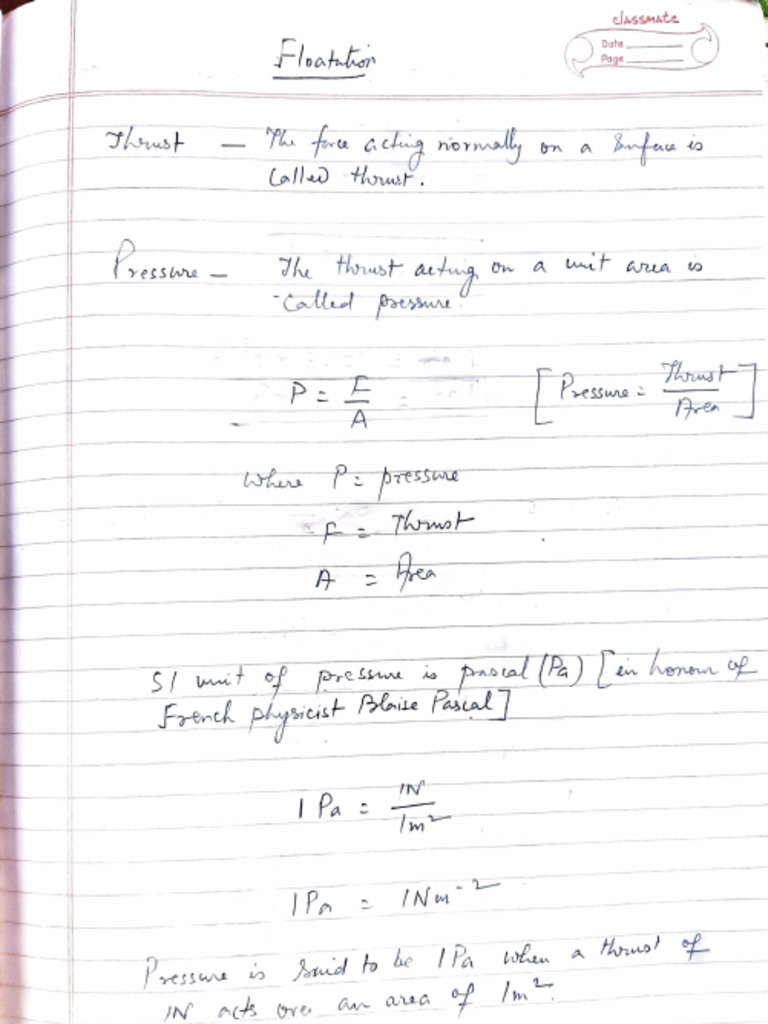 classmate
Date
Page
Floatation
Thrust — The force acting normally on a surface is
called thrust.
Pressure — The thrust acting on a unit area is
called pressure.
P = F/A [Pressure = Thrust/Area]
Where P = pressure
F = Thrust
A = Area
SI unit of pressure is pascal (Pa) [in honour of
French physicist Blaise Pascal]
1 Pa = 1N/1m²
1 Pa = 1Nm⁻²
Pressure is said to be 1 Pa when a thrust of
1N acts over an area of 1m².